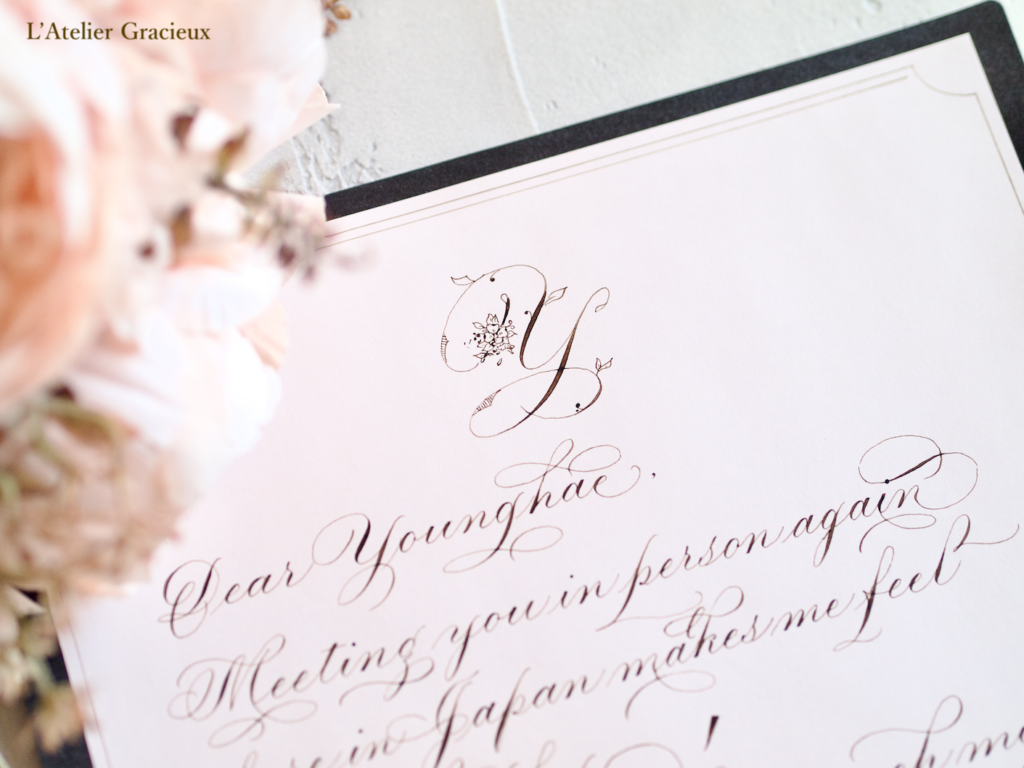 L'Atelier Gracieux
Y
Dear Younghae,
Meeting you in person again
in Japan makes me feel